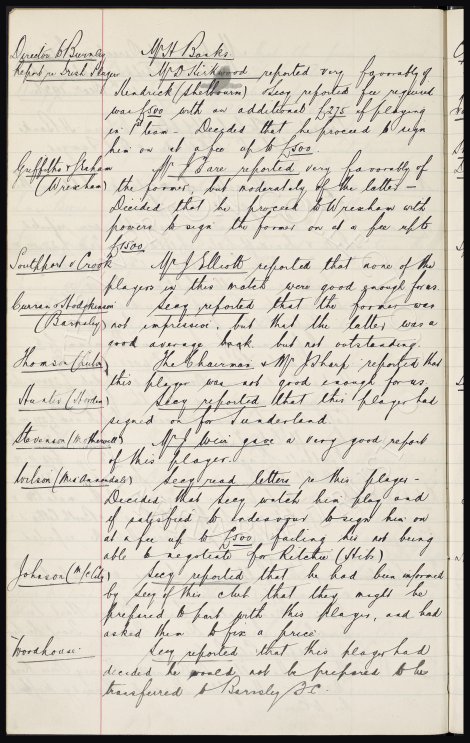 Director to Burnley Mr H Banks.
Report re Irish Player Mr D Kirkwood reported very favorably of
Kendrick (Shelbourne) Secy reported fee required
was £500 with an additional £275 if playing
in 1st team - Decided that he proceed to sign
him on at a fee up to £500.
Griffiths & Graham Mr J Bare reported very favorably of
(Wrexham) the former, but moderately of the latter -
Decided that he proceed to Wrexham with
powers to sign the former on at a fee upto
£1500.
Southport v Crook Mr J Elliott reported that none of the
players in this match were good enough for us.
Curran & Hodgkinson Secy reported that the former was
(Barnsley) not impressive, but that the latter was a
good average back but not outstanding.
Thomson ( The Chairman & Mr J Sharp reported that
this player was not good enough for us.
Hunter (Horden) Secy reported that this player had
signed on for Sunderland.
Stevenson (Motherwell) Mr J Weir gave a very good report
of this player.
Wilson (Mid Annandale) Secy read letters re this player -
Decided that Secy watch him play and
if satisfied to endeavour to sign him on
at a fee up to £500 failing his not being
able to negotiate for Ritchie (Hibs)
Johnson (M/City) Secy reported that he had been informed
by Secy of this club that they might be
prepared to part with this player, and had
asked them to fix a price.
Woodhouse. Secy reported that this player had
decided he would not be prepared to be
transferred to Barnsley F.C.